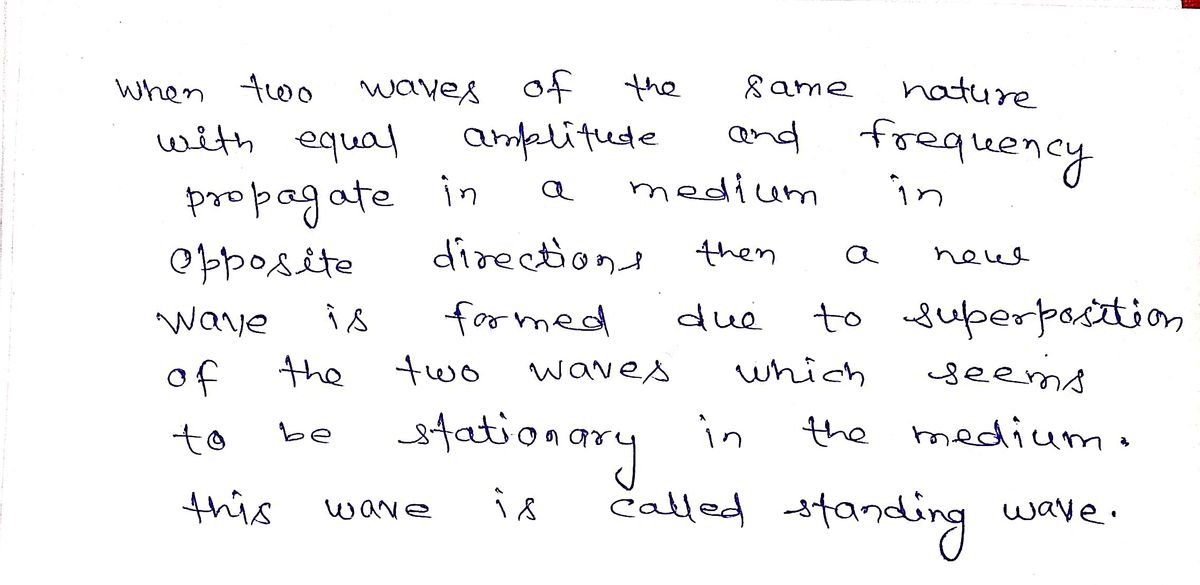 When two waves of the same nature
with equal amplitude and frequency
propagate in a medium in
opposite directions then a new
wave is formed due to superposition
of the two waves which seems
to be stationary in the medium.
this wave is called standing wave.